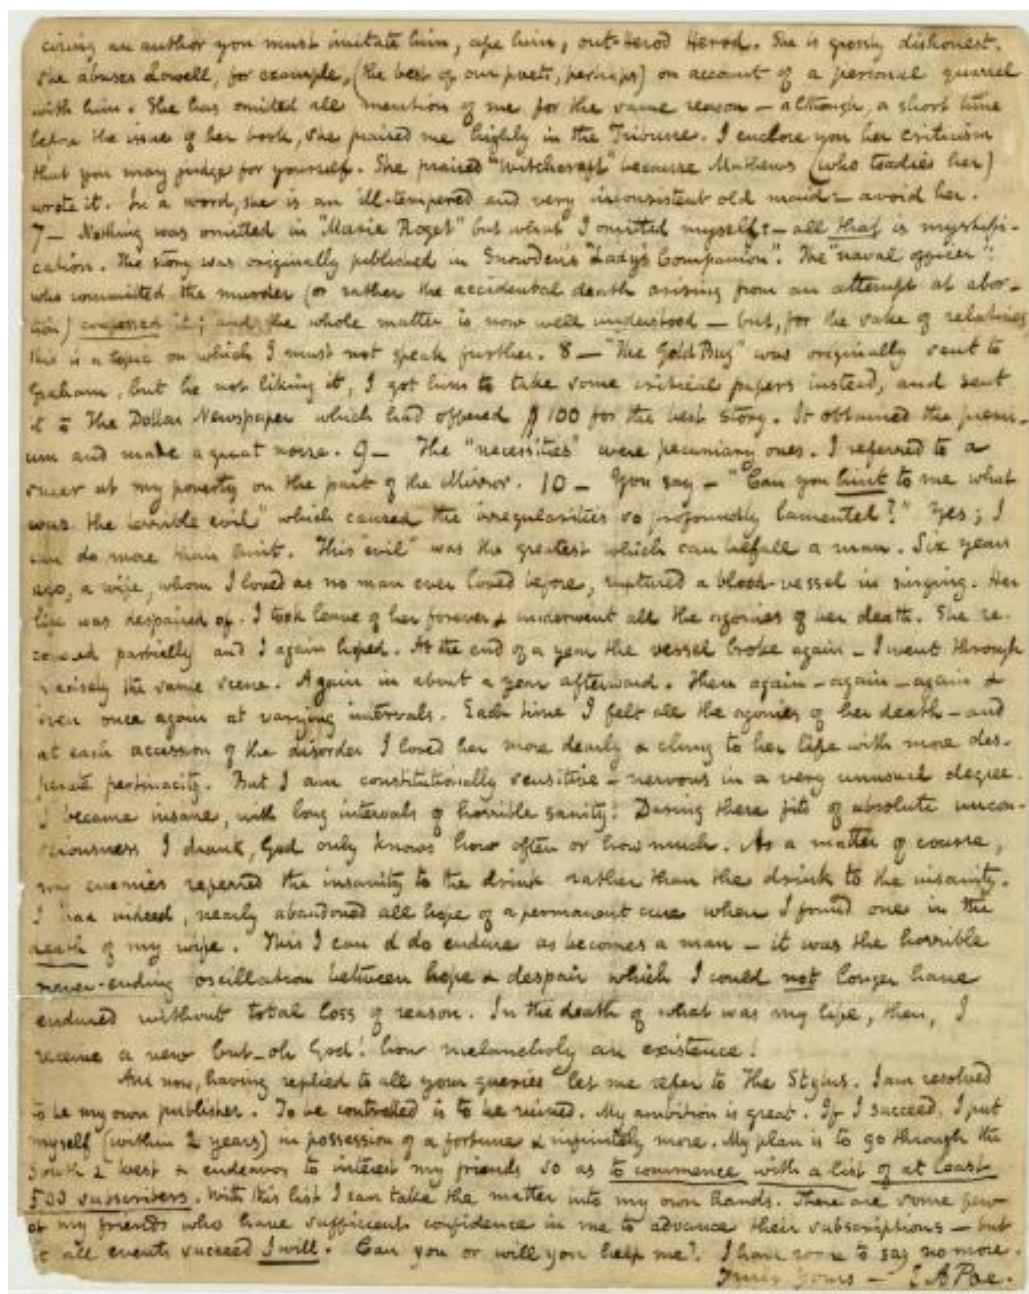 ciring an author you must imitate him, ape him, out-Herod Herod. She is grossly dishonest.
She abuses Lowell, for example, (the best of our poets, perhaps) on account of a personal quarrel
with him. She has omitted all mention of me for the same reason — although, a short time
before the issue of her book, she praised me highly in the Tribune. I enclose you her criticism
that you may judge for yourself. She praised "Witchcraft" because Mathews (who toadies her)
wrote it. In a word, she is an ill-tempered and very inconsistent old maid — avoid her.
7 — Nothing was omitted in "Marie Roget" but what I omitted myself: — all that is mystifi-
cation. The story was originally published in Snowden's "Lady's Companion". The "naval officer"
who committed the murder (or rather the accidental death arising from an attempt at abor-
tion) confessed it; and the whole matter is now well understood — but, for the sake of relatives
this is a topic on which I must not speak further. 8 — "The Gold Bug" was originally sent to
Graham, but he not liking it, I got him to take some critical papers instead, and sent
it to The Dollar Newspaper which had offered $100 for the best story. It obtained the premi-
um and made a great noise. 9 — The "necessities" were pecuniary ones. I referred to a
sneer at my poverty on the part of the Mirror. 10 — You say — "Can you hint to me what
was the terrible evil" which caused the irregularities so profoundly lamented?" Yes; I
can do more than hint. This "evil" was the greatest which can befall a man. Six years
ago, a wife, whom I loved as no man ever loved before, ruptured a blood-vessel in singing. Her
life was despaired of. I took leave of her forever & underwent all the agonies of her death. She re-
covered partially and I again hoped. At the end of a year the vessel broke again — I went through
precisely the same scene. Again in about a year afterward. Then again — again — again &
even once again at varying intervals. Each time I felt all the agonies of her death — and
at each accession of the disorder I loved her more dearly & clung to her life with more des-
perate pertinacity. But I am constitutionally sensitive — nervous in a very unusual degree.
I became insane, with long intervals of horrible sanity. During these fits of absolute uncon-
sciousness I drank, God only knows how often or how much. As a matter of course,
my enemies referred the insanity to the drink rather than the drink to the insanity.
I had indeed, nearly abandoned all hope of a permanent cure when I found one in the
death of my wife. This I can & do endure as becomes a man — it was the horrible
never-ending oscillation between hope & despair which I could not longer have
endured without total loss of reason. In the death of what was my life, then, I
receive a new but — oh God! how melancholy an existence!
And now, having replied to all your queries let me refer to The Stylus. I am resolved
to be my own publisher. To be controlled is to be ruined. My ambition is great. If I succeed, I put
myself (within 2 years) in possession of a fortune & infinitely more. My plan is to go through the
South & West & endeavor to interest my friends so as to commence with a list of at least
500 subscribers. With this list I can take the matter into my own hands. There are some few
of my friends who have sufficient confidence in me to advance their subscriptions — but
at all events succeed I will. Can you or will you help me? I have room to say no more.
Truly Yours — E A Poe.